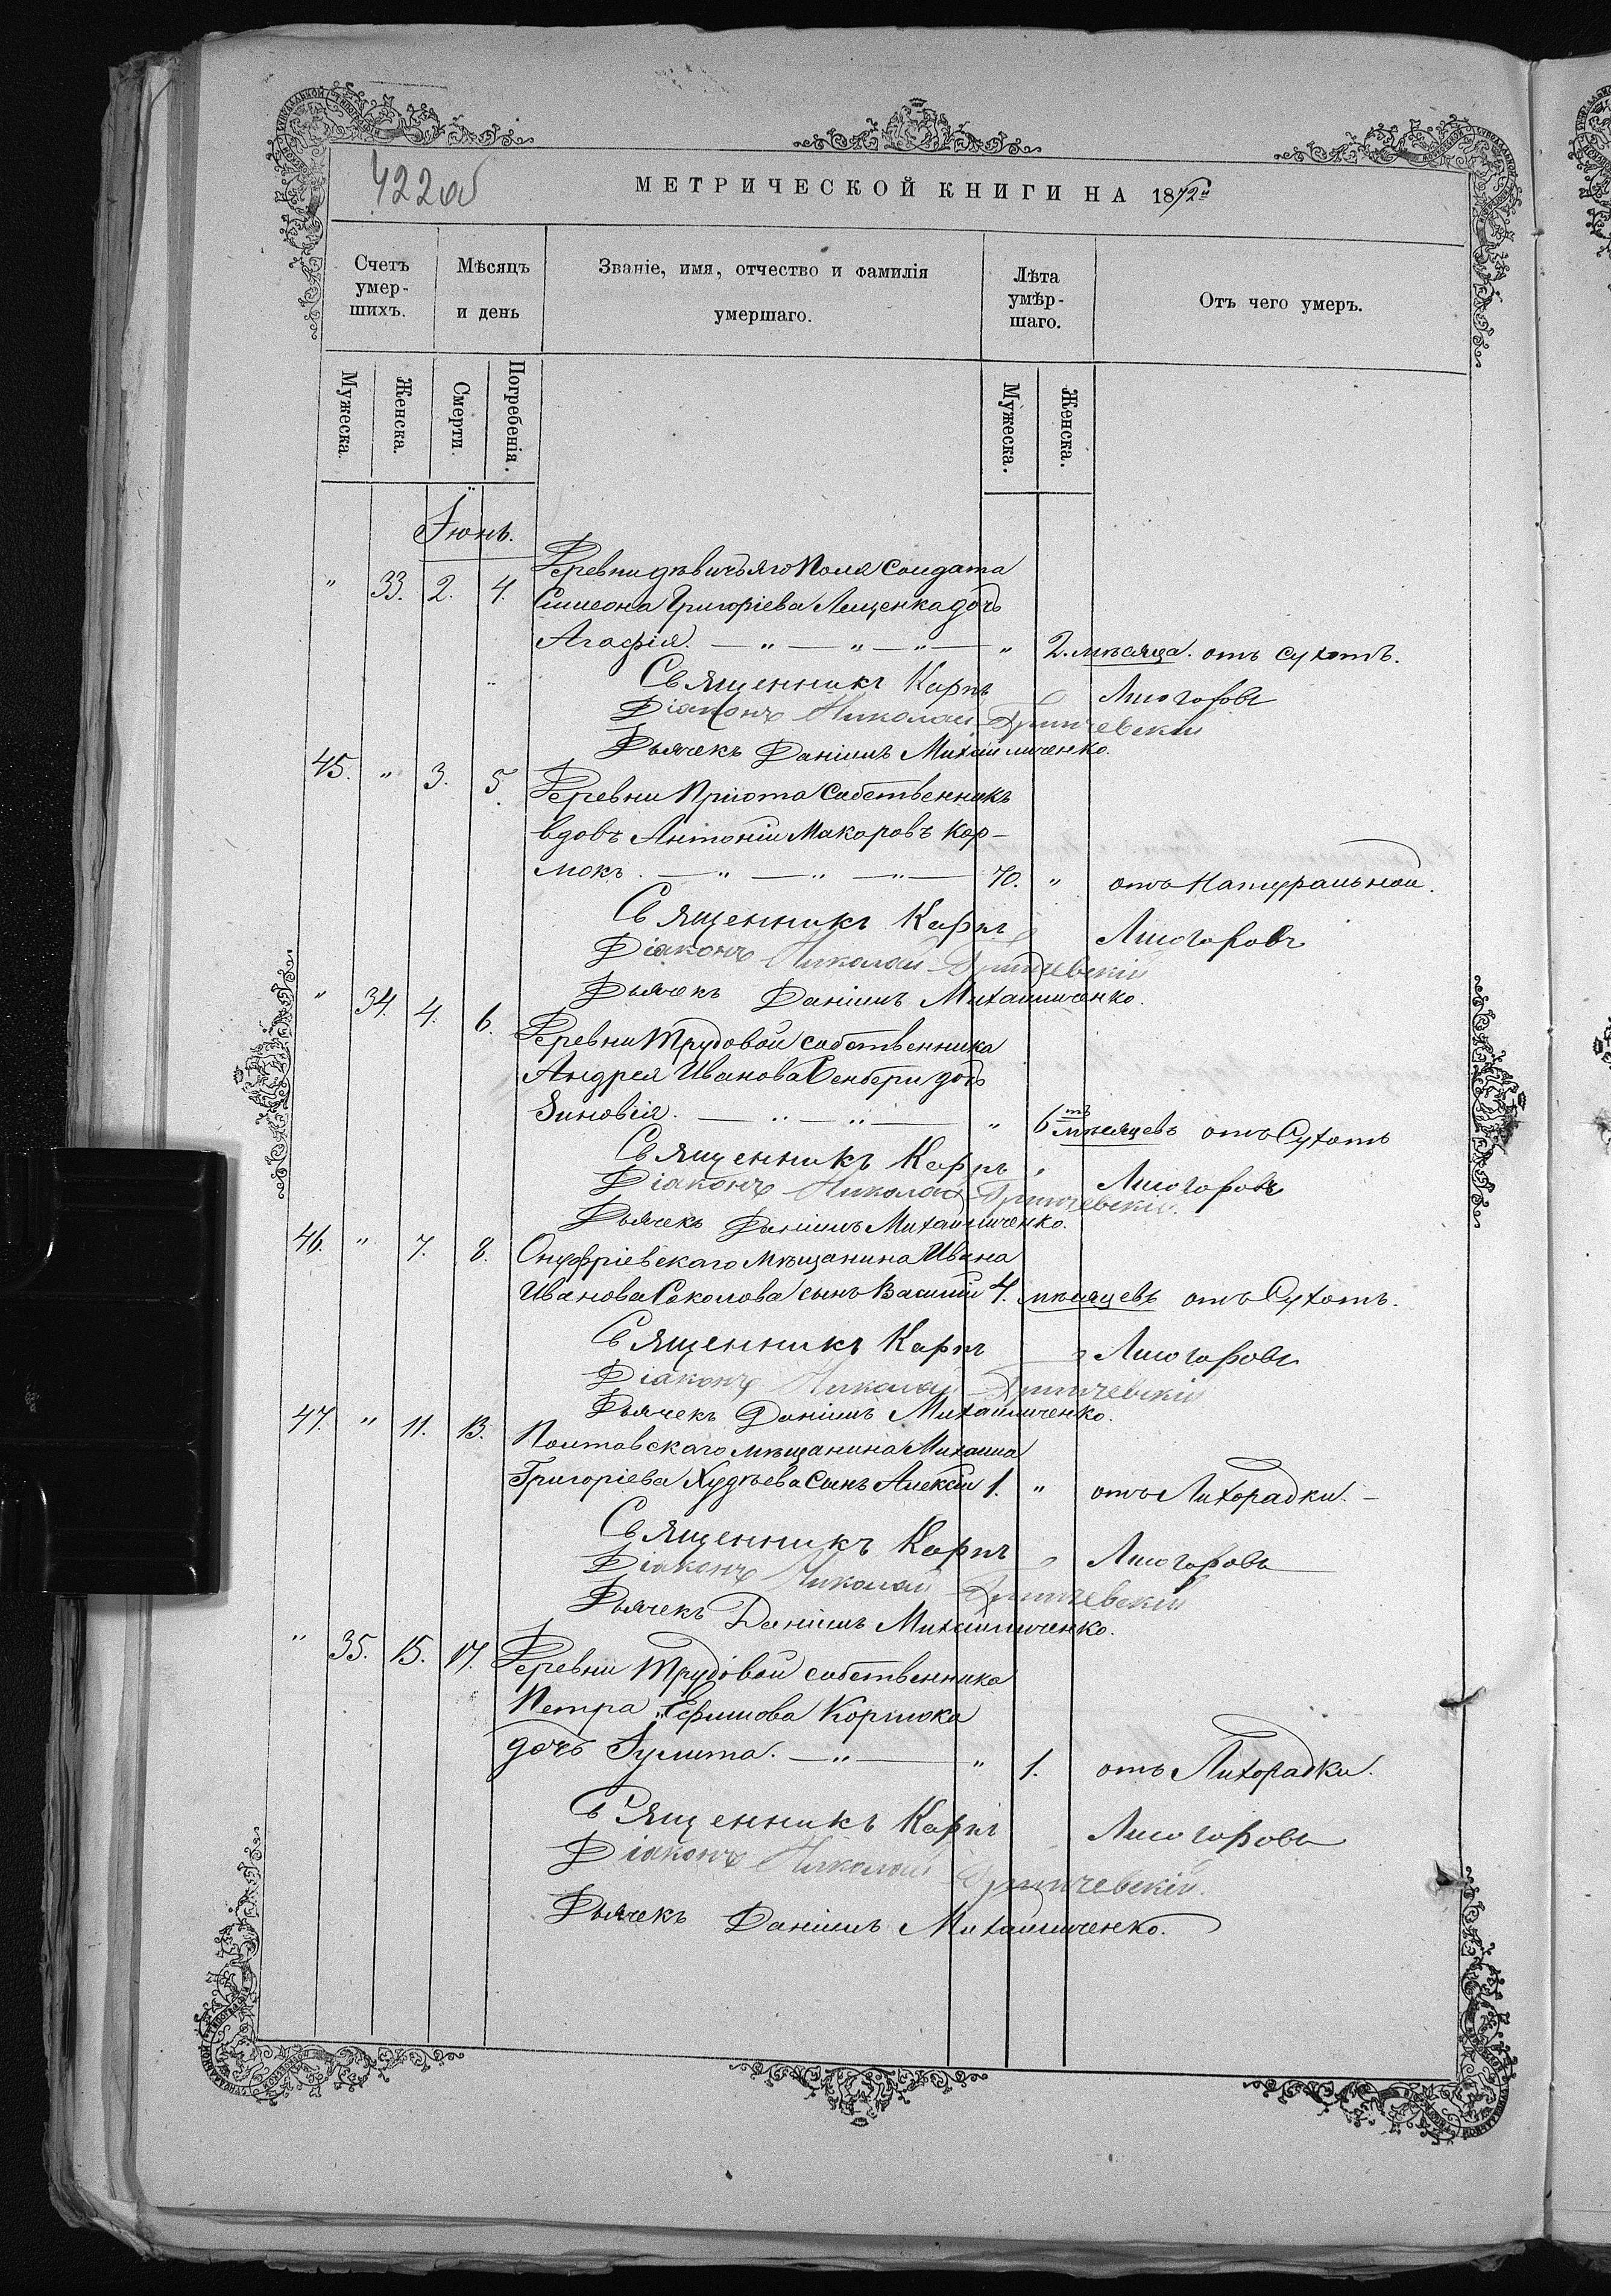 422об
МЕТРИЧЕСКОЙ КНИГИ НА 1872й
Счетъ умер-шихъ.
Мѣсяцъ и день
Званіе, имя, отчество и фамилія умершаго.
Лѣта умѣр-шаго.
Отъ чего умеръ.
Мужеска.
Женска.
Смерти.
Погребенія.
Мужеска.
Женска.
Іюнь.
Деревни дѣвичьяго Поля Солдата
" 33. 2. 4. Симеона Григоріева Лященка дочь
Агафія. — " — " — " — " 2. мѣсяца. отъ сухотъ.
Священникъ Карпъ Лисогоровъ
Діаконъ Николай
Дьячекъ Даніилъ Михайличенко.
45. " 3. 5. Деревни Пріюта Собственникъ
вдовъ Антоній Макаровъ Кор-
мокъ. — " — " — " — 70. " отъ Натуральной.
Священникъ Карпъ Лисогоровъ
Діаконъ Николай
Дьячекъ Даніилъ Михайличенко.
" 34. 4. 6. Деревни Трудовой собственника
Андрея Иванова дочь
Зиновія. — " — " — " 6ть мѣсяцевъ отъ Сухотъ
Священникъ Карпъ Лисогоровъ
Діаконъ Николай
Дьячекъ Даніилъ Михайличенко.
46. " 7. 8. Онуфріевскаго мѣщанина Ивана
Иванова Соколова сынъ Василій 4. мѣсяцевъ отъ Сухотъ.
Священникъ Карпъ Лисогоровъ
Діаконъ Николай
Дьячекъ Даніилъ Михайличенко.
47. " 11. 13. Полтавскаго мѣщанина Михаила
Григоріева Худѣева Сынъ Алексій 1. " отъ Лихорадки. —
Священникъ Карпъ Лисогоровъ
Діаконъ Николай
Дьячекъ Даніилъ Михайличенко.
" 35. 15. 17. Деревни Трудовой собственника
Петра Ефимова Кормока
дочь Іулита. — " — " 1. отъ Лихорадки.
Священникъ Карпъ Лисогоровъ
Діаконъ Николай
Дьячекъ Даніилъ Михайличенко.